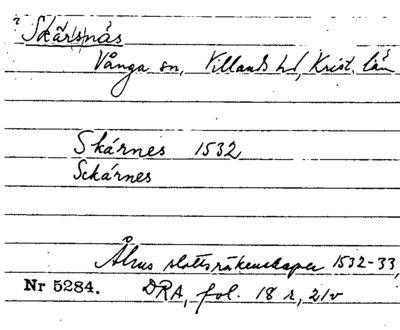 ? Skär(s)näs
Vånga sn, Villands hd, Krist. läns
Skárnes 1532
Sckárnes
Åhus slottsräkenskaper 1532-33,
Nr 5284. DRA, fol. 18 r, 21v